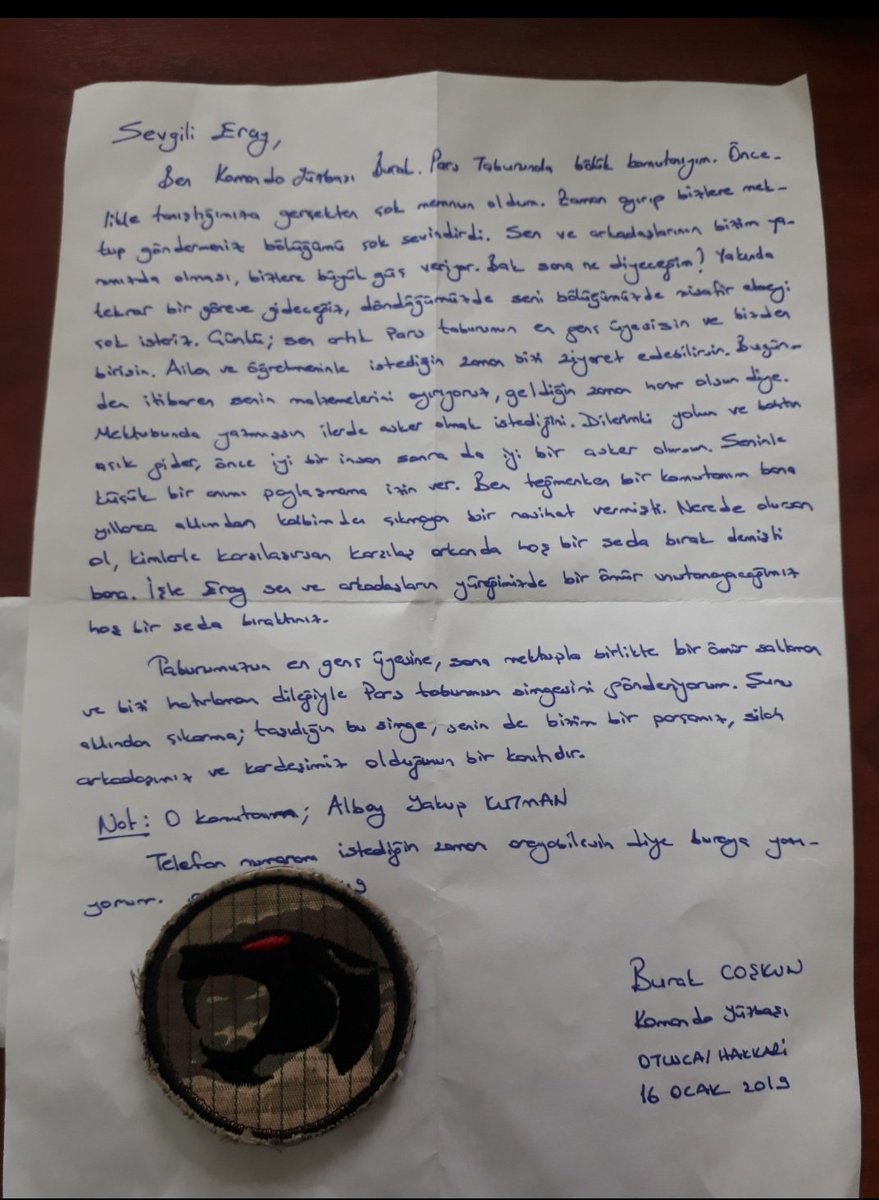 Sevgili Eray,
Ben Komando Yüzbaşı Burak. Pars Taburunda bölük komutanıyım. Önce-
likle tanıştığımıza gerçekten çok memnun oldum. Zaman ayırıp bizlere mek-
tup göndermeniz bölüğümü çok sevindirdi. Sen ve arkadaşlarının bizim ya-
nımızda olması, bizlere büyük güç veriyor. Bak sana ne diyeceğim? Yakında
tekrar bir göreve gideceğiz, döndüğümüzde seni bölüğümüzde misafir etmeyi
çok isteriz. Çünkü; sen artık Pars taburunun en genç üyesisin ve bizden
birisin. Ailen ve öğretmeninle istediğin zaman bizi ziyaret edebilirsin. Bugün-
den itibaren senin malzemelerini ayırıyoruz, geldiğin zaman hazır olsun diye.
Mektubunda yazmışsın ilerde asker olmak istediğini. Dilerimki yolun ve bahtın
açık gider, önce iyi bir insan sonra da iyi bir asker olursun. Seninle
küçük bir anımı paylaşmama izin ver. Ben teğmenken bir komutanım bana
yıllarca aklımdan kalbimden çıkmayan bir nasihat vermişti. Nerede olursan
ol, kimlerle karşılaşırsan karşılaş arkanda hoş bir seda bırak demişti
bana. İşte Eray sen ve arkadaşların yüreğimizde bir ömür unutamayacağımız
hoş bir seda bıraktınız.
Taburumuzun en genç üyesine, sana mektupla birlikte bir ömür saklaman
ve bizi hatırlaman dileğiyle Pars taburunun simgesini gönderiyorum. Şunu
aklından çıkarma; taşıdığın bu simge, senin de bizim bir parçamız, silah
arkadaşımız ve kardeşimiz olduğunun bir kanıtıdır.
Not: O komutanım; Albay Yakup
Telefon numaramı istediğin zaman arayabilesin diye buraya yazı-
yorum.
Burak COŞKUN
Komando Yüzbaşı
OTLUCA/HAKKARİ
16 OCAK 2019